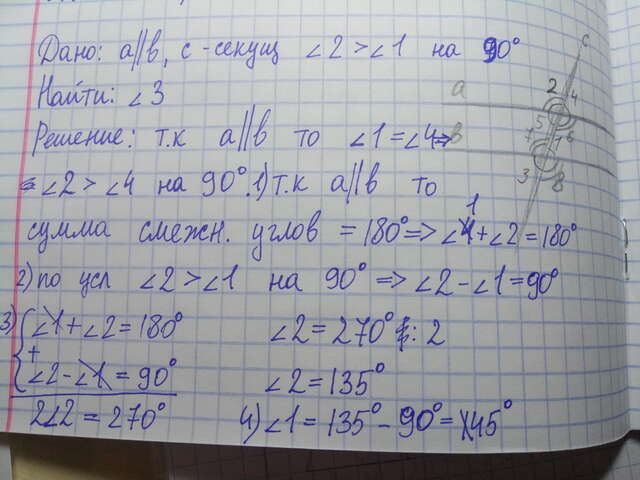 Дано: a||b, c - секущ ∠2 > ∠1 на 90°
Найти: ∠3
Решение: т.к a||b то ∠1 = ∠4 =>
=> ∠2 > ∠4 на 90°. 1) т.к a||b то
сумма смежн. углов = 180° => ∠1 + ∠2 = 180°
2) по усл ∠2 > ∠1 на 90° => ∠2 - ∠1 = 90°
3) { ∠1 + ∠2 = 180° ∠2 = 270° : 2
+
∠2 - ∠1 = 90° ∠2 = 135°
2∠2 = 270° 4) ∠1 = 135° - 90° = 45°
c
2 4
a
5 6
b
7 1
3 8